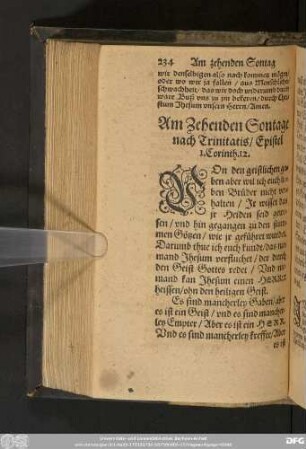 234 Am zehenden Sontag
wir denselbigen also nach kommen mögen/
oder wo wir ja fallen / aus Menschlicher
schwachheit / das wir doch widerumb durch
ware Buß uns zu dir bekeren / durch Chri
stum Jhesum unsern Herrn / Amen.
Am Zehenden Sontage
nach Trinitatis / Epistel
1. Corinth. 12.
VOn den geistlichen ga
ben aber wil ich euch lie
ben Brüder nicht ver
halten / Jr wisset das
jr Heiden seid gewe
sen / und hin gegangen zu den stum
men Götzen / wie jr gefüret wurdet.
Darumb thue ich euch kunde / das nie
mand Jhesum verfluchet / der durch
den Geist Gottes redet / Und nie
mand kan Jhesum einen HERRN
heissen / ohn den heiligen Geist.
Es sind mancherley Gaben / aber
es ist ein Geist / und es sind mancher
ley Empter / Aber es ist ein HERR.
Und es sind mancherley kreffte / Aber
es ist
DFG